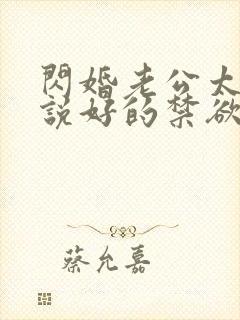 閃婚老公太
說好的禁欲
蔡允嘉